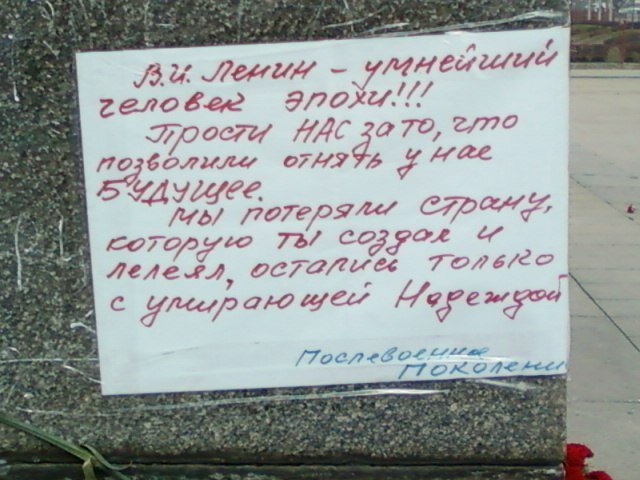 В.И. Ленин – умнейший
человек эпохи!!!
Прости НАС за то, что
позволили отнять у нас
БУДУЩЕЕ.
Мы потеряли страну,
которую ты создал и
лелеял, остались только
с умирающей Надеждой
Послевоенное
Поколени